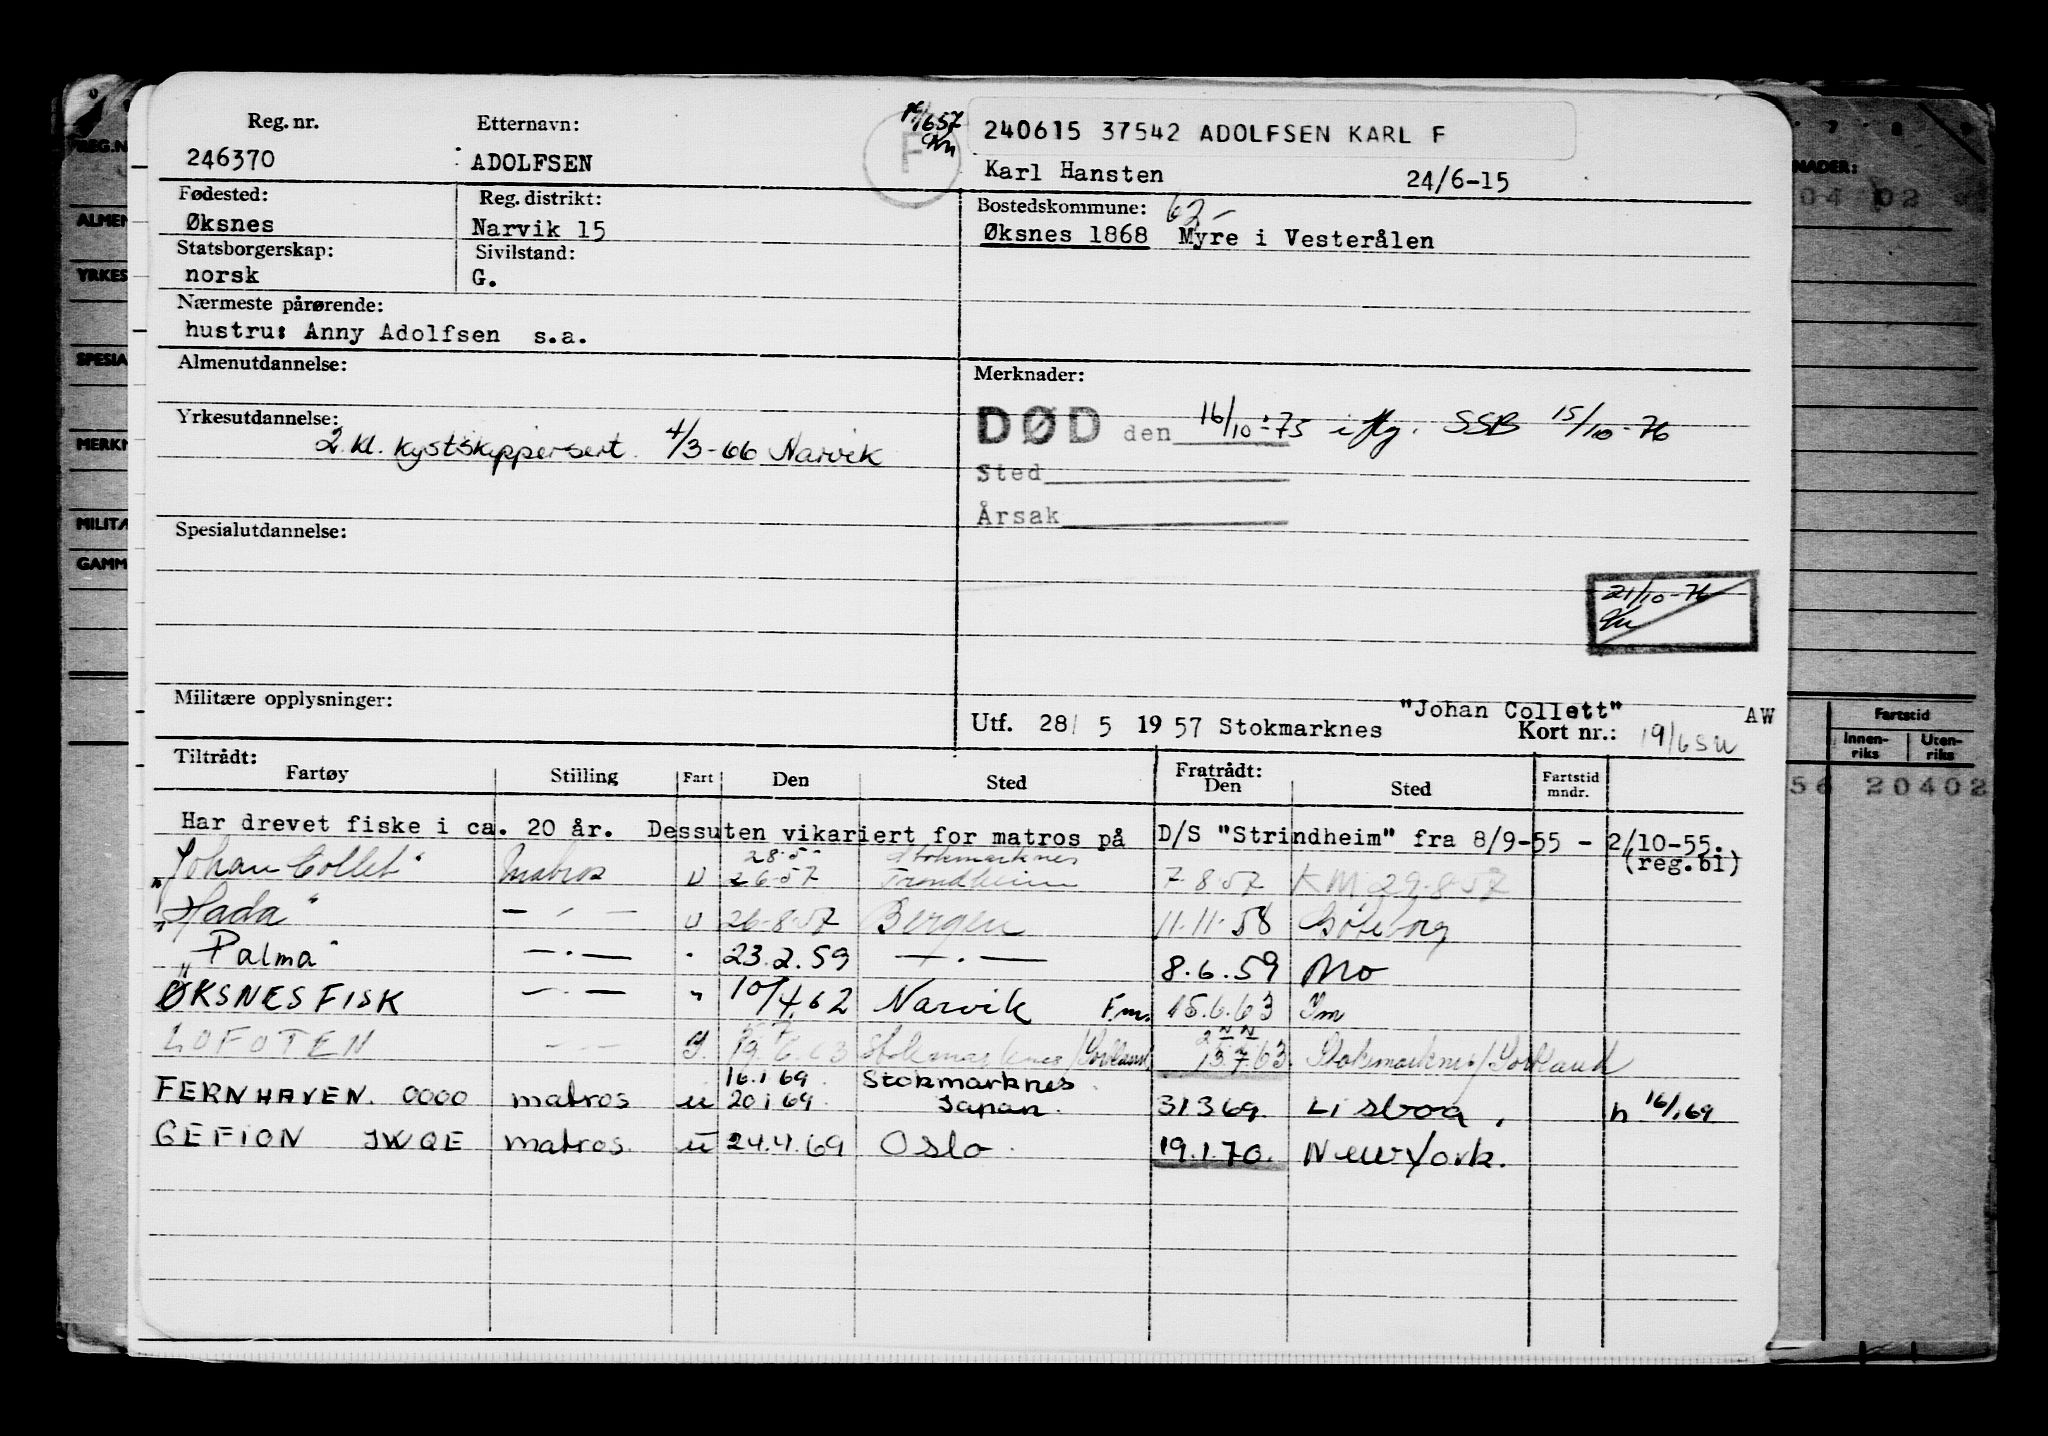 Reg. nr. Etternavn: 240615 37542 ADOLFSEN KARL F
246370 ADOLFSEN F Karl Hansten 24/6-15
Fødested: Reg. distrikt: Bostedskommune: 62-
Øksnes Narvik 15 Øksnes 1868 Myre i Vesterålen
Statsborgerskap: Sivilstand:
norsk G.
Nærmeste pårørende:
hustru: Anny Adolfsen s.a.
Almenutdannelse: Merknader:
Yrkesutdannelse: DØD den 16/10-75 iflg. SSB 15/10-76
2. kl. kystskippersert. 4/3-66 Narvik
Sted
Årsak
Spesialutdannelse:
21/10-76
Militære opplysninger: "Johan Collett" AW
Utf. 28/ 5 1957 Stokmarknes Kort nr.:
Tiltrådt: Fratrådt:
Fartøy Stilling Fart Den Sted Den Sted Fartstid mndr.
Har drevet fiske i ca. 20 år. Dessuten vikariert for matros på D/S "Strindheim" fra 8/9-55 - 2/10-55.
(reg.bl)
28.5- Stokmarknes
"Johan Collet" Matros U 2.6.57 Trondheim 7.8.57 KM 29.8.57
"Hada" — " — U 26-8-57 Bergen 11.11.58 Göteborg
"Palma" — " — " 23.2.59 — " — 8.6.59 Mo
ØKSNESFISK — " — " 10/4.62 Narvik F.m. 15.6.63
LOFOTEN — " — 19.6.63 Stokmarknes/Sortland 13.7.63 Stokmarknes/Sortland
16.1 69 Stokmarknes
FERNHAVEN. 0000 matros u 20 1 69. Japan. 31 3 69. Lisboa. n 16/1.69
GEFION JWQE matros. u 24.4.69 Oslo. 19.1.70. New York.
REG.N
ALMEN
YRKES
SPESIA
MERKN
MILITÆ
GAMM
7 8 9
NADER:
04 02
Fartstid
Innen-riks Uten-riks
56 20402